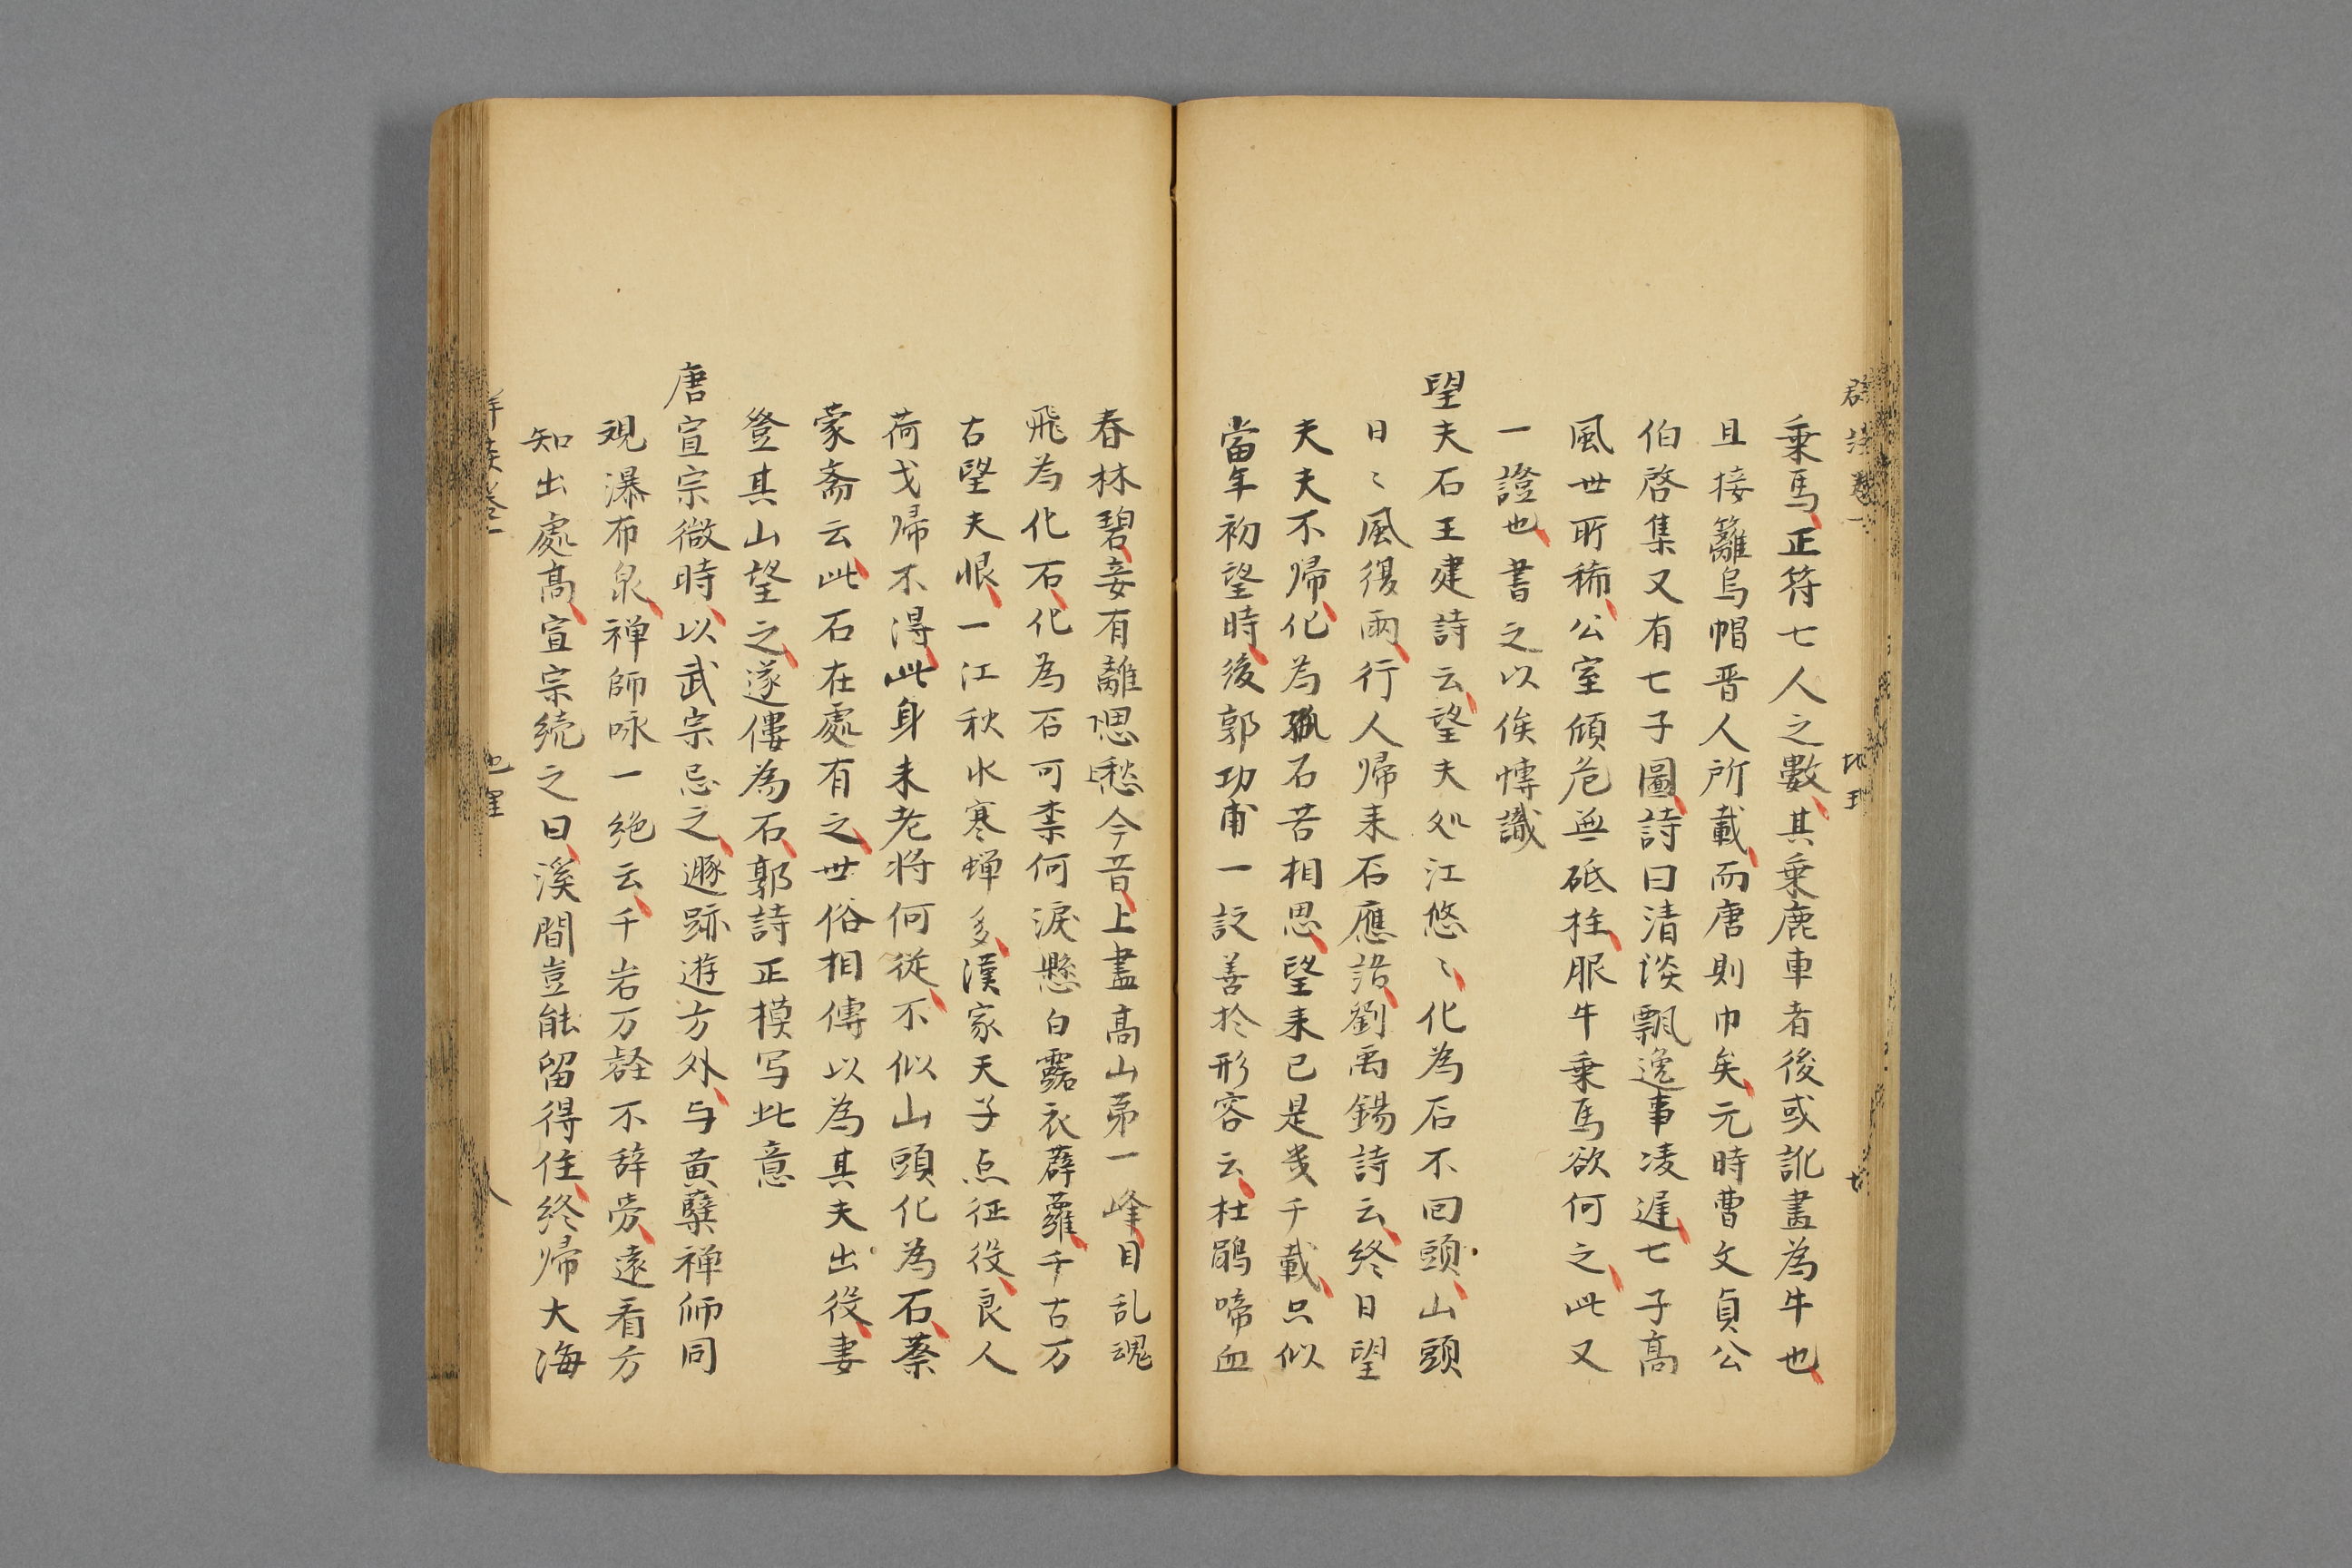 乗馬正符七人之數其乗鹿車者後或訛畫為牛也
且接䍦烏帽晋人所載而唐則巾矣元時曹文貞公
伯啓集又有七子圖詩曰清淡飄逸事凌遅七子髙
風世所稀公室傾危無砥柱服牛乗馬欲何之此又
一證也書之以俟愽識
望夫石王建詩云望夫処江悠〻化為石不回頭山頭
日〻風復雨行人帰来石應語劉禹錫詩云終日望
夫夫不帰化為孤石苦相思望来已是幾千載只似
當年初望時後郭功甫一設善於形容云杜鵑啼血
春林碧妾有離思愁今昔上盡高山第一峰目乱魂
飛為化石化為石可柰何淚懸白露衣薜蘿千古万
古望夫恨一江秋水寒蝉多漢家天子点征役良人
荷戈帰不得此身未老将何從不似山頭化為石蔡
蒙斋云此石在處有之世俗相傳以為其夫出役妻
登其山望之遂僂為石郭詩正模写此意
唐宣宗微時以武宗忌之遯跡遊方外与黄蘖禅师同
观瀑布泉禅師咏一絶云千岩万壑不辞劳遠看方
知出處髙宣宗続之曰溪間豈能留得住終帰大海